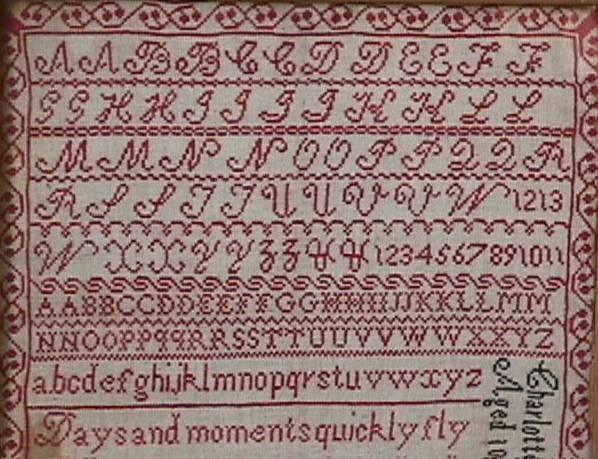 A A B B C C D D E E F F
G G H H I I J J K K L L
M M N N O O P P Q Q R
R S S T T U U V V W 1213
W X X Y Y Z Z & & 1234567891011
AABBCCDDEEFFGGHHIIJJKKLLMM
NNOOPPqqRRSSTTUUVVWWXXYZ
abcdefghijklmnopqrstuvwxyz
Days and moments quickly fly
Charlotte
Aged 10